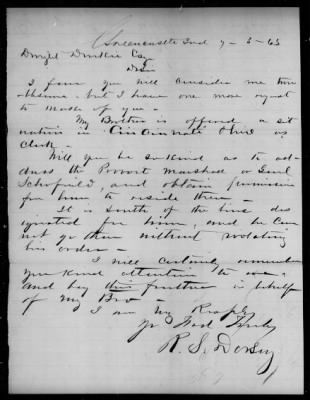 Greencastle Ind 7-3-63
Dwight Esq
D Sir
I fear you will consider me
but I have one more request
to make of you -
My Brother is offered a sit
uation in Cincinnati Ohio as
clerk -
Will you be so kind as to ad-
dress the Provost Marshall or Genl
Schofield, and obtain permission
for him to reside there -
It is South of the line des
ignated for him, and he can
not go there without violating
his orders -
I will certainly remember
your kind attention to me -
and by this further in behalf
of my Bro -
I am my
yr Truly
R. S. Dorsey